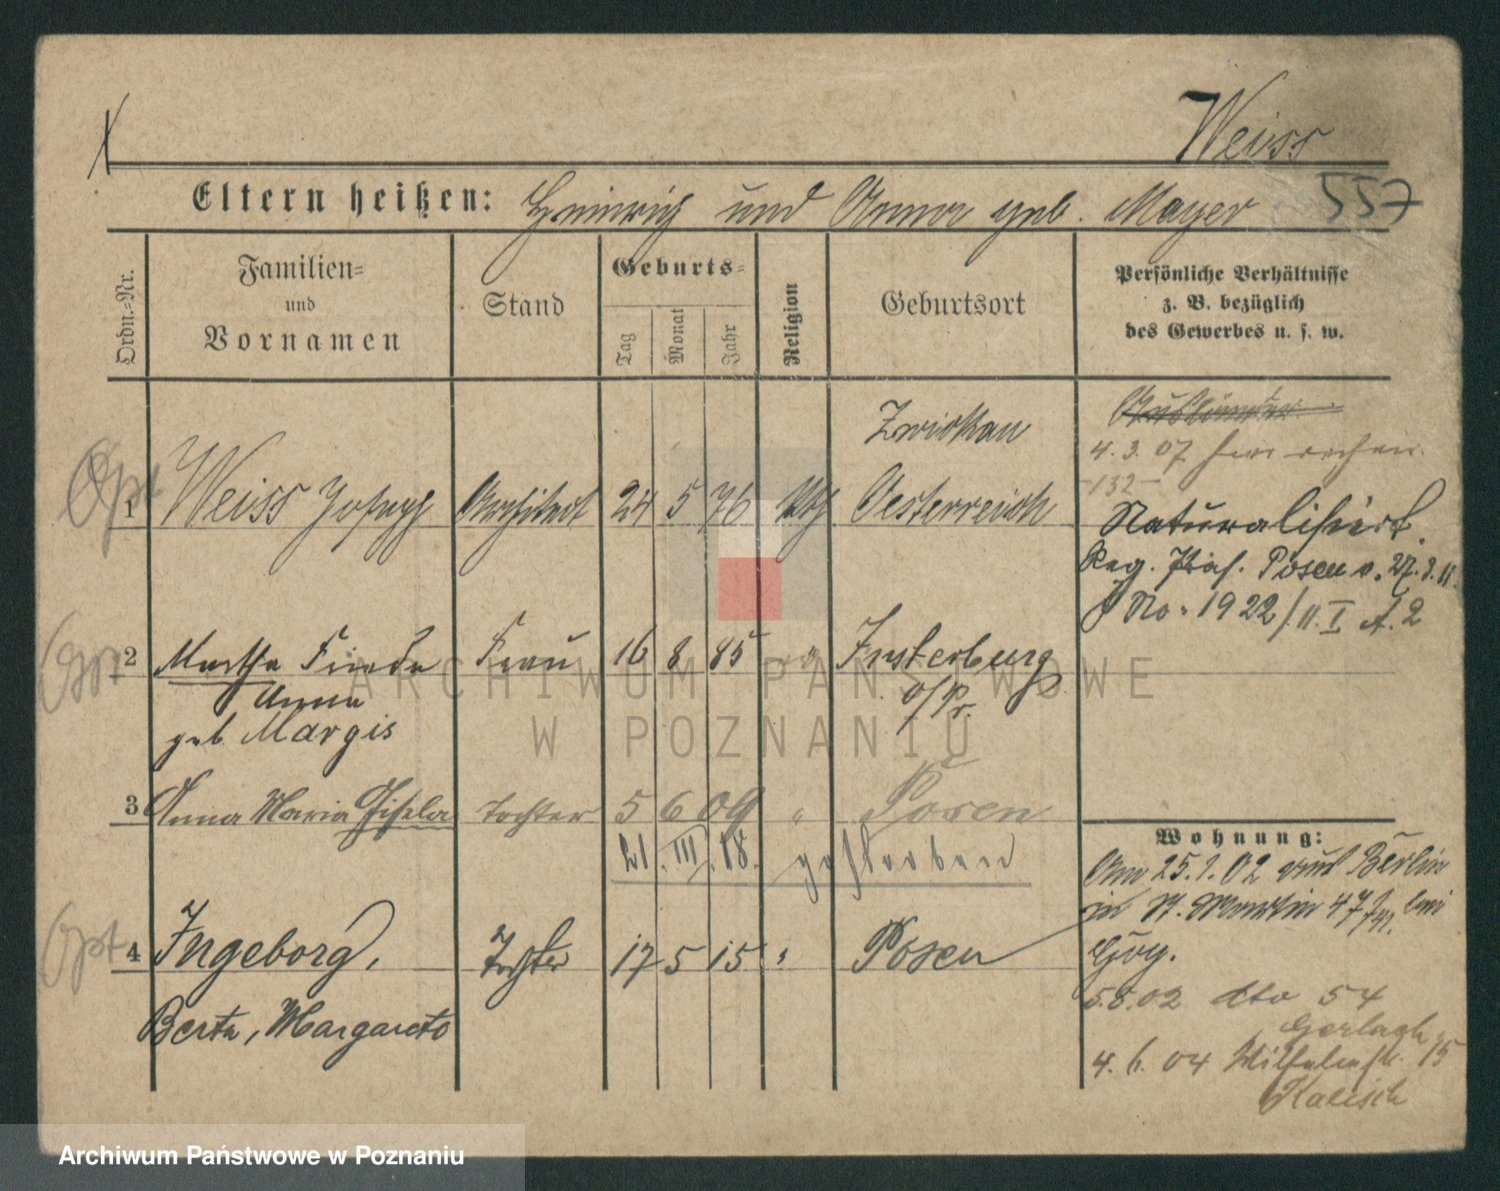 Weiss
557
Eltern heißen: Heinrich und Anna geb. Mayer
Ordn.=Nr.
Familien=
und
Vornamen
Stand
Geburts=
Tag
Monat
Jahr
Religion
Geburtsort
Persönliche Verhältnisse
z. B. bezüglich
des Gewerbes u. s. w.
Opt
1 Weiss Joseph Architect 24 5 76 kth Zwickau
Oesterreich
Ausländer
4. 3. 07
132
Naturalisirt.
Reg. Präs. Posen v. 27. 3. 11.
J No. 1922/11. I A. 2
Opt
2 Martha Frieda Frau 16 8 85 Insterburg
Anna
o/Pr.
geb. Margis
3 Anna Maria Gisela Tochter 5 6 09 " Posen
21. III. 18. gestorben
Opt
4 Ingeborg, Tochter 17 5 15 " Posen
Berta, Margarete
Wohnung:
Am 25. 1. 02 aus Berlin
in St. Martin 47 bei
5.8.02 dto 54
Gerlach
4. 6. 04 Wilhelmstr. 15
Kalisch
ARCHIWUM PAŃSTWOWE
W POZNANIU
Archiwum Państwowe w Poznaniu